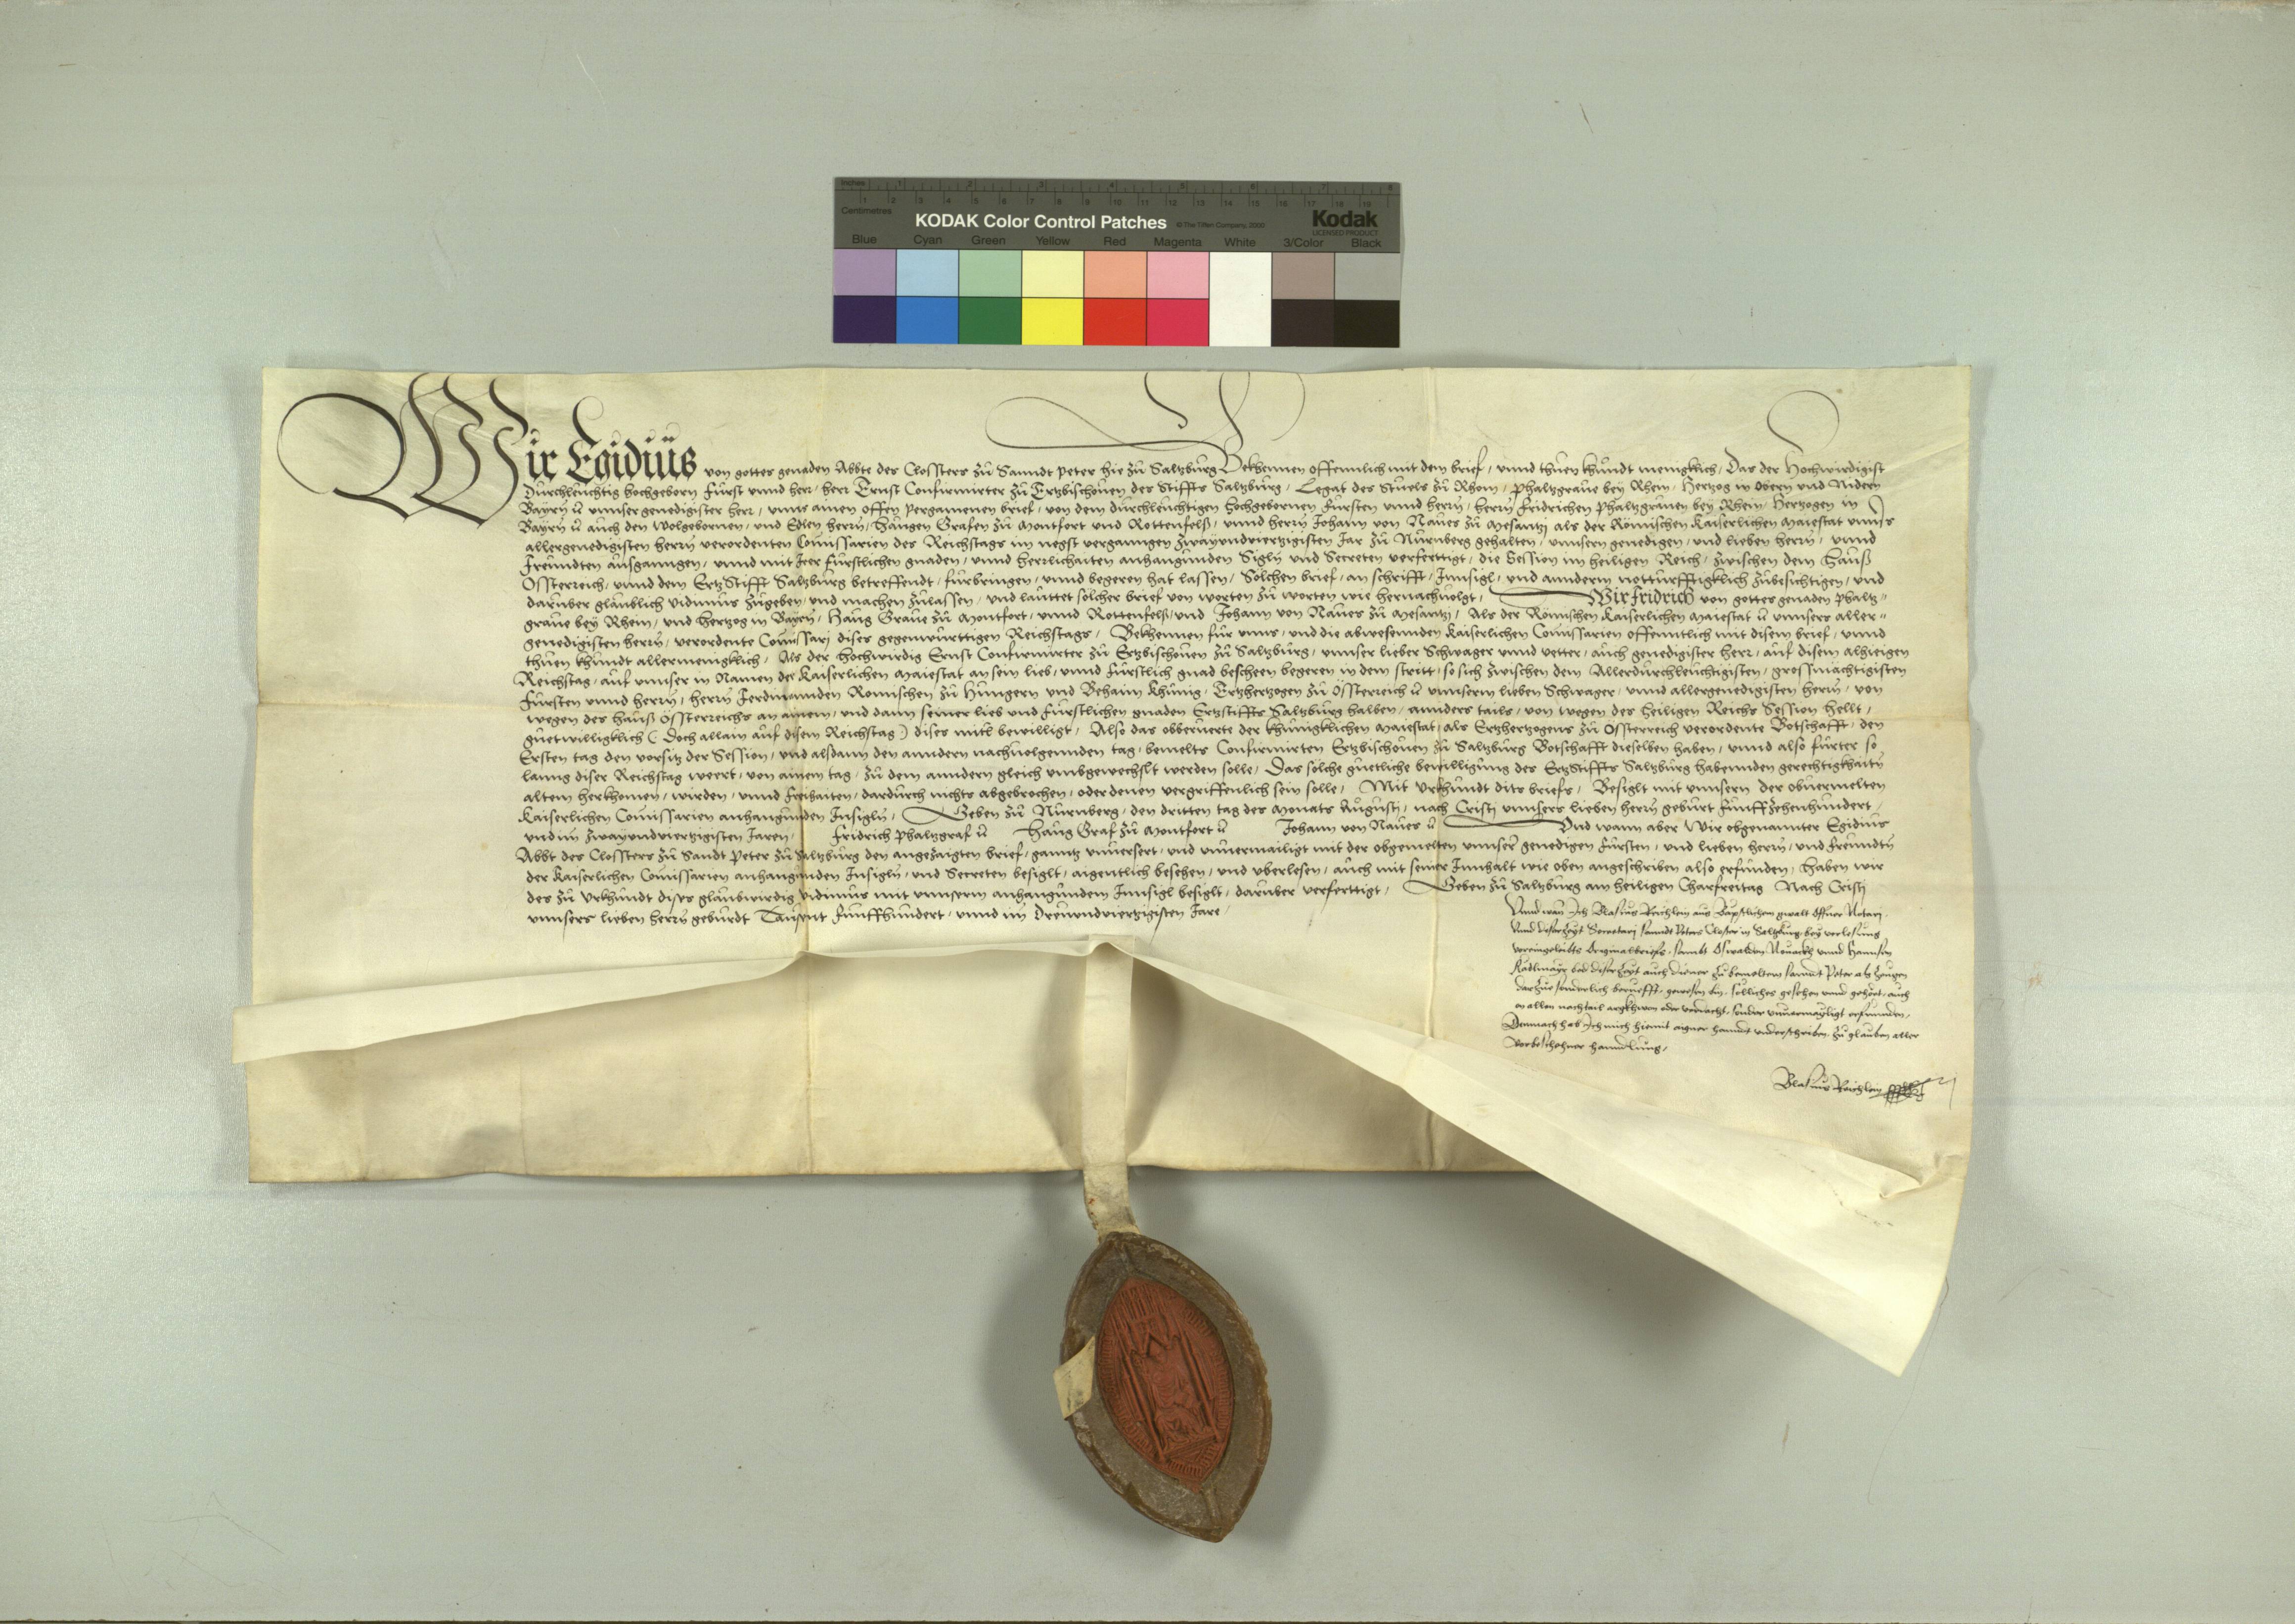 Inches 1 2 3 4 5 6 7 8
1 2 3 4 5 6 7 8 9 10 11 12 13 14 15 16 17 18 19
Centimetres
KODAK Color Control Patches © The Tiffen Company, 2000 Kodak
LICENSED PRODUCT
Blue Cyan Green Yellow Red Magenta White 3/Color Black
Wir Egidiüs von gottes genaden Abbte des Closters zů Sanndt Peter hie zů Saltzbůrg Bekhennen offennlich mit dem brief, unnd thůen khundt menigklich, Das der Hochwirdigist
Durchleuchtig hochgeborn Fürst unnd herr, herr Ernst Confirmirter zů Ertzbischouen des Stiffts Saltzbůrg, Legat des Stuels zů Rhom, Phaltzgraue bey Rhein, Hertzog in Obern und Nidern
Bayrn ůnnser genedigister herr, unns ainen offen pergamenen brief, von dem durchleuchtigen hochgebornen Fürsten unnd herrn, herrn Fridrichen Phaltzgrauen bey Rhein, Hertzogen in
Bayrn auch den Wolgebornen, und Edlen herrn, Haugen Grafen zů Montfort und Rottenfelß, unnd herrn Johann von Naues zů Mesantzj als der Römischen Kaiserlichen Maiestat unnsers
allergenedigisten herrn verordenten Comissarien des Reichstags im negst verganngen zwayundviertzigisten Jar zů Nürnberg gehalten, unnsern genedigen, und lieben herrn, unnd
freundten ausganngen, unnd mit Jrer Fürstlichen gnaden, unnd herrlichaiten anhanngunden Sigln und Secreten verferttigt, die Session im heiligen Reich, zwischen dem Hauß
Össterreich, unnd dem ErtzStifft Saltzburg betreffendt, fürbringen, unnd begeren hat lassen, Solchen brief, an schrifft, Innsigl, und annderm notturfftigklich zubesichtigen, und
darüber glaublich vidimus zugeben, und machen zulassen, und lauttet solcher brief von worten zů worten wie hernachuolgt, Wir Fridrich von gottes genaden Phaltz-
graue bey Rhein, und Hertzog in Bayrn, Haug Graue zů Montfort, unnd Rottenfelß, und Johann von Naues zů Mesantzj, Als der Römischen Kaiserlichen Maiestat unnsers aller-
genedigisten herrn, verordente Comissarj dises gegenwürttigen Reichstags, Bekhennen für unns, und die abwesennden Kaiserlichen Comissarien offenntlich mit disem brief, unnd
thuen khundt allermenigklich, Als der hochwirdig Ernst Confirmirter zů Ertzbischouen zů Saltzburg, unnser lieber Schwager unnd vetter, auch genedigister herr, auf disem alhieigen
Reichstag, auf unnser in Namen der Kaiserlichen Maiestat an sein lieb, unnd Fürstlich gnad bescheen begeren in dem stritt, so sich zwischen dem Allerdurchleuchtigisten, grossmächtigisten
Fürsten unnd herrn, herrn Ferdinanden Römischen zů Hungern und Behaim Khünig, Ertzhertzogen zů Össterreich unnserm lieben Schwager, unnd allergenedigisten herrn, von
wegen des Hauß Össterreichs an ainem, und dann seiner lieb und Fürstlichen gnaden Ertzstiffts Saltzburg halben, annders tails, von wegen des heiligen Reichs Session hellt,
guetwilligklich (Doch allain auf disem Reichstag) dises mitl bewilligt, Also das obberuerte der Khünigklichen Maiestat, als Ertzhertzogens zů Össterreich verordente Botschafft, den
Ersten tag den vorsitz der Session, und alsdann den anndern nachuolgennden tag, bemelts Confirmirten Ertzbischouen zů Saltzburg Botschafft dieselben haben, unnd also fürter so
lanng diser Reichstag weert, von ainem tag, zů dem anndern gleich umbgewechslt werden solle, Das solche guetliche bewilligung des ErtzStiffts Saltzburg habennden gerechtigkhaitn
altem herkhomen, wirden, unnd freihaiten, dardurch nichts abgebrochen, oder denen vergriffenlich sein solle, Mit Urkhundt dits briefs, Besiglt mit unnsern der obuermelten
Kaiserlichen Comissarien anhanngunden Insigln, Geben zů Nürnberg, den dritten tag des Monats Augustj, nach Cristj unnsers lieben herrn geburt Fünffzehenhundert,
und im zwayundviertzigisten Jaren, Fridrich Phaltzgraf Haug Graf zů Montfort Johann von Naues Und wann aber Wir obgenannter Egidius
Abbt des Closters zů Sandt Peter zů Saltzburg den angezaigten brief, ganntz unuersert, und unuermailigt mit der obgemelten unnser genedigen Fürsten, und lieben herrn, und freundtn
der Kaiserlichen Comissarien anhangunden Insigln, und Secreten besiglt, aigentlich besehen, und uberlesen, auch mit seiner Innhalt wie oben angeschriben also erfunden, Haben wir
des zů Urkhundt dises glaubwirdig vidimus mit unnserm anhangundem Innsigl besiglt, darüber verferttigt, Geben zů Saltzburg am heiligen Charfreitag Nach Cristj
unnsers lieben herrn geburdt Tausent Fünffhundert, unnd im Dreuundviertzigisten Jare,
Unnd wan Ich Blasius Reichlein aus Bäpstlichem gwalt offner Notarj,
Unnd diser Zeyt Secretarj sanndt Peters Closter in Saltzburg, bey verlesung
voreingeleibts Originalbriefs, sambt Oswalden Nouackh unnd Hannsen
Kadlmayr bed diser Zeyt auch diener zů bemeltem sanndt Peter als zeugen
darzue sonderlich beruefft, gewesen bin, sölliches gesehen unnd gehört, auch
on allen nachtail argkhwon oder verdacht, sonder unuermayligt erfunnden,
Demnach hab Ich mich hiemit aigner hanndt underschriben, zů glauben aller
vorbeschehner hanndlung,
Blasius Reichlein